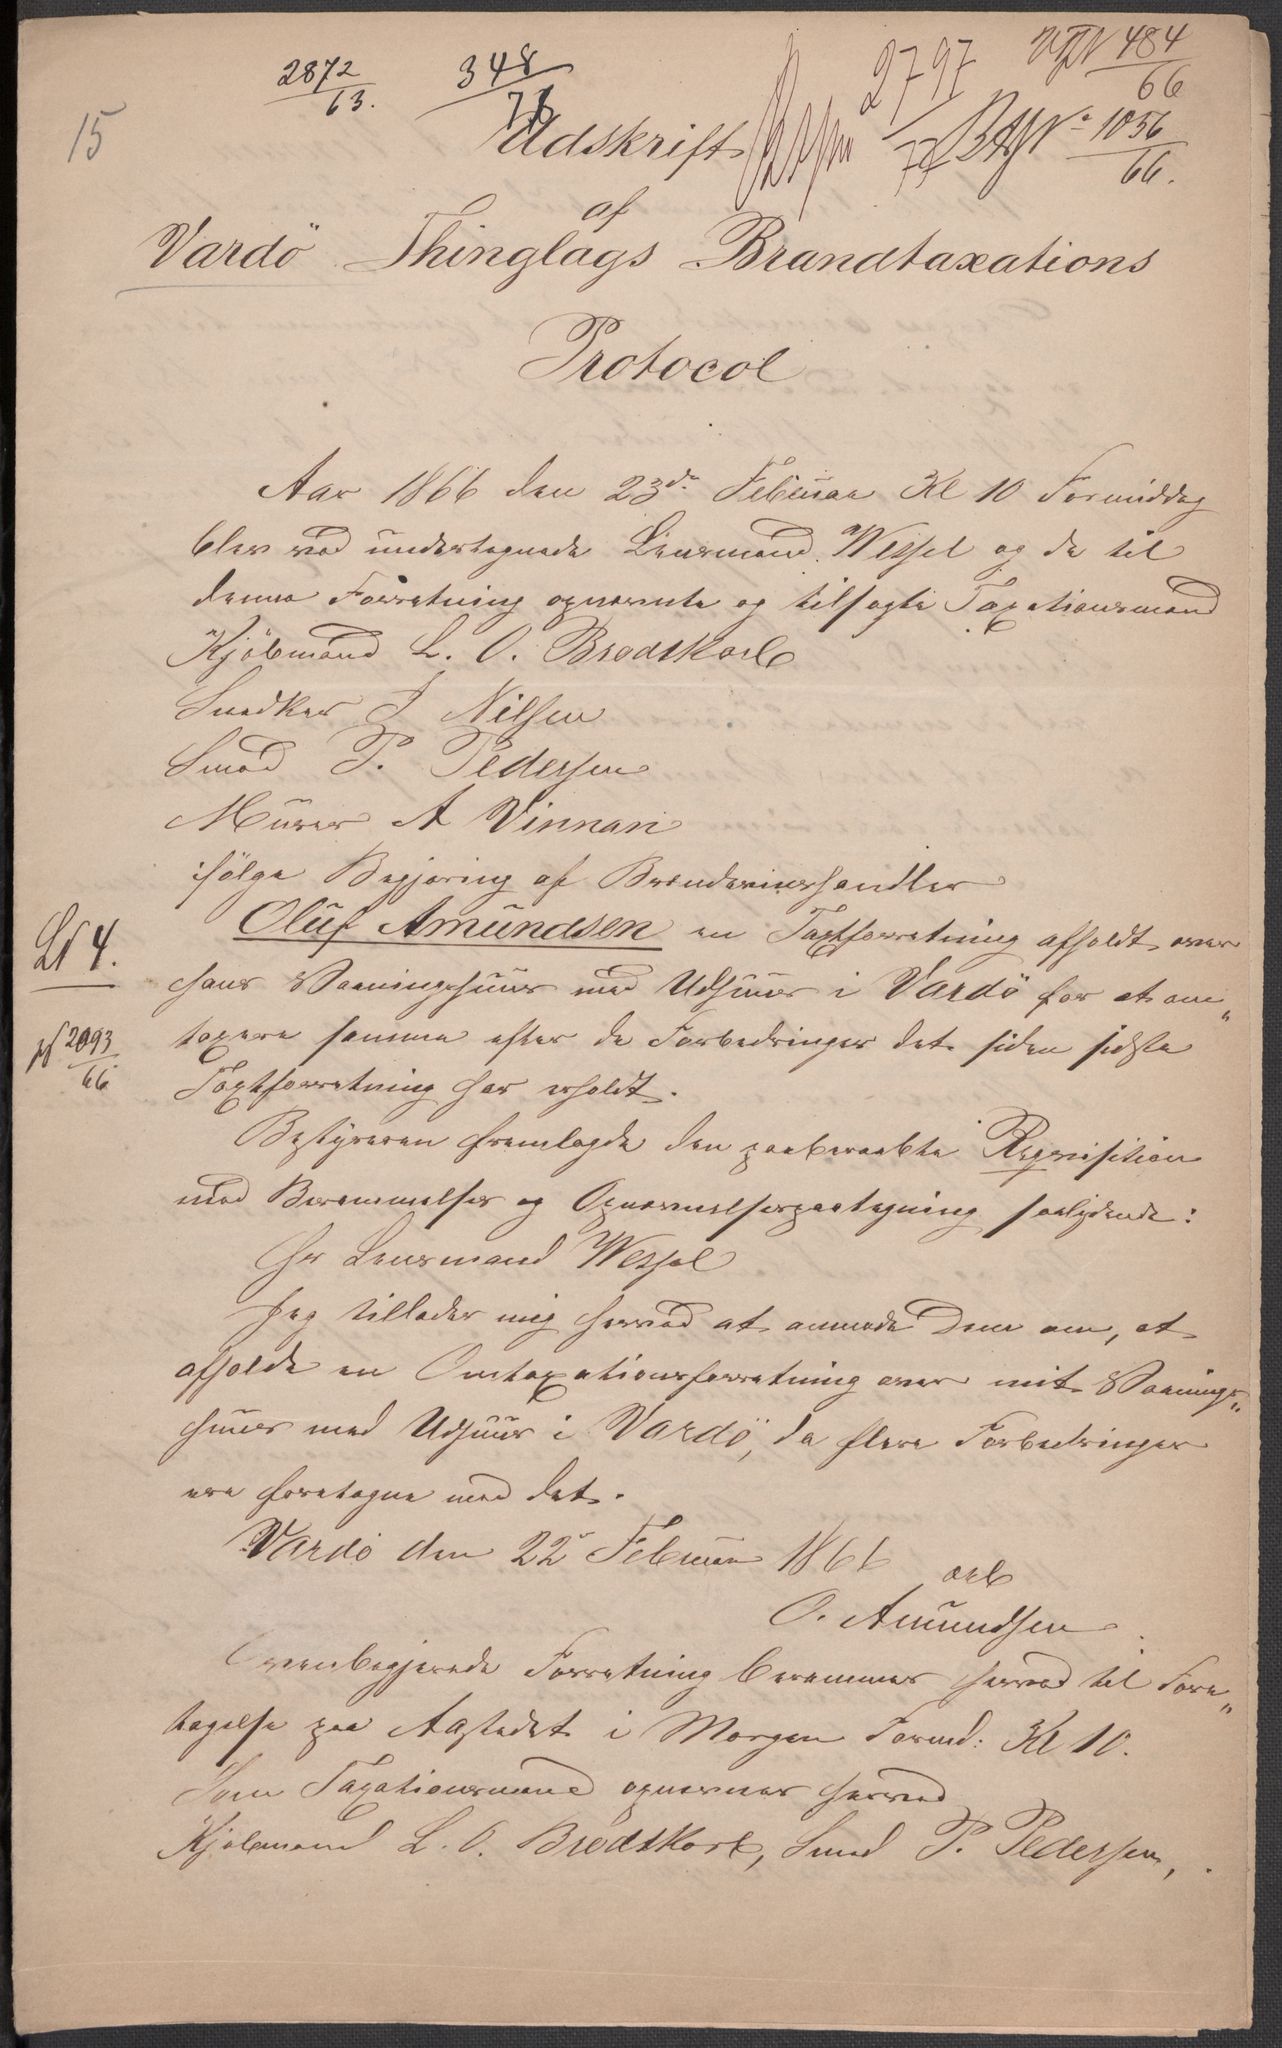 2872/63.
348/76
2797/77
484/66
15
1056/66.
Udskrift
af
Vardö Thinglags Brandtaxations
Protocol
Aar 1866 den 23de Februar Kl 10 Formiddag
blev ved undertegnede Lensmand Wessel og de til
denne Forretning opnævnte og tilsagte Taxationsmænd
Kjöbmand L. O. Brodtkorb
Snedker J Nilsen
Smed P. Pedersen
Murer A Vinnan
ifölge Begjæring af Brændeviinshandler
Oluf Amundsen en Taxtforretning afholdt over
Lit 4.
hans Vaaningshuus med Udhuus i Vardö for at om„
N 2093/66.
taxere samme efter de Forbedringer det siden sidste
Taxtforretning har erholdt.
Bestyreren fremlagde den paaberaabte Reqvisition
med Berammelses og Opnævnelsespaategning saalydende:
Hr Lensmand Wessel
Jeg tillader mig herved at anmode Dem om, at
afholde en Omtaxationsforretning over mit Vaanings„
huus med Udhuus i Vardö, da flere Forbedringer
ere foretagne med det.
Vardö den 22 Februar 1866 ærb
O. Amundsen
Ovenbegjærede Forretning berammes herved til Fore„
tagelse paa Aastedet i Morgen Formd: Kl 10.
Som Taxationsmænd opnævnes herved
Kjöbmand L. O. Brodtkorb, Smed P. Pedersen,